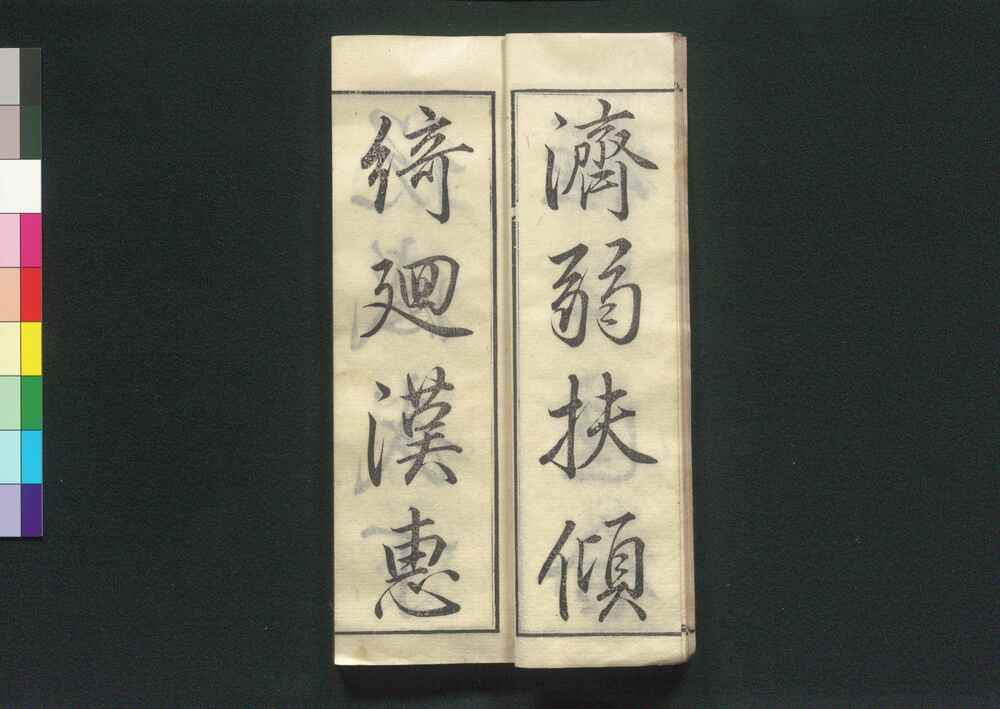 濟弱扶傾
綺廻漢惠